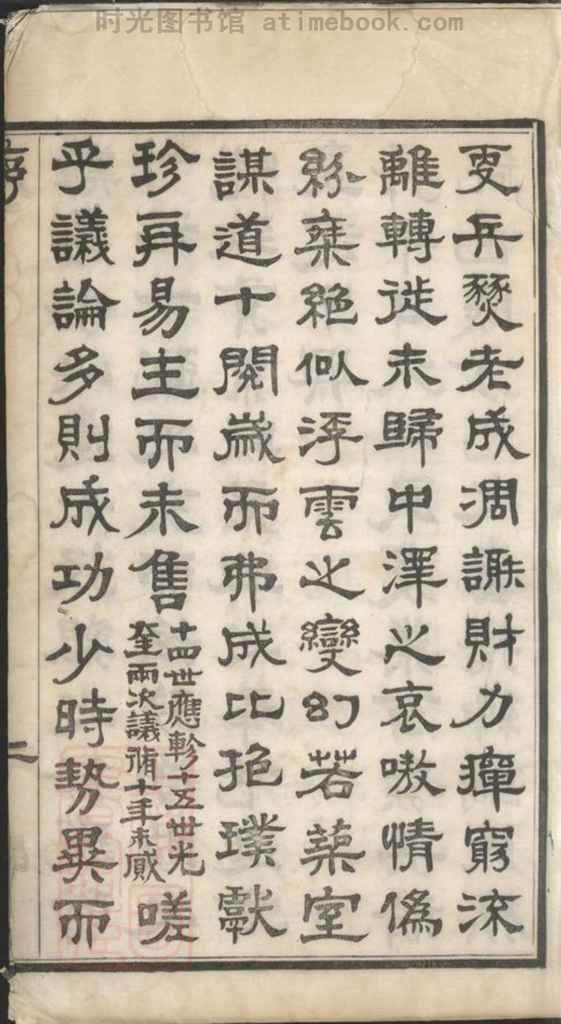 时光图书馆 atimebook.com
更兵燹老成凋謝財力殫窮流
離轉徙未歸中澤之哀嗷情偽
紛棻絕似浮雲之變幻若築室
謀道十閱歲而弗成比抱璞獻
珍再易主而未售十四世應軫十五世光奎兩次議脩十年未成嗟
乎議論多則成功少時勢異而
序
二